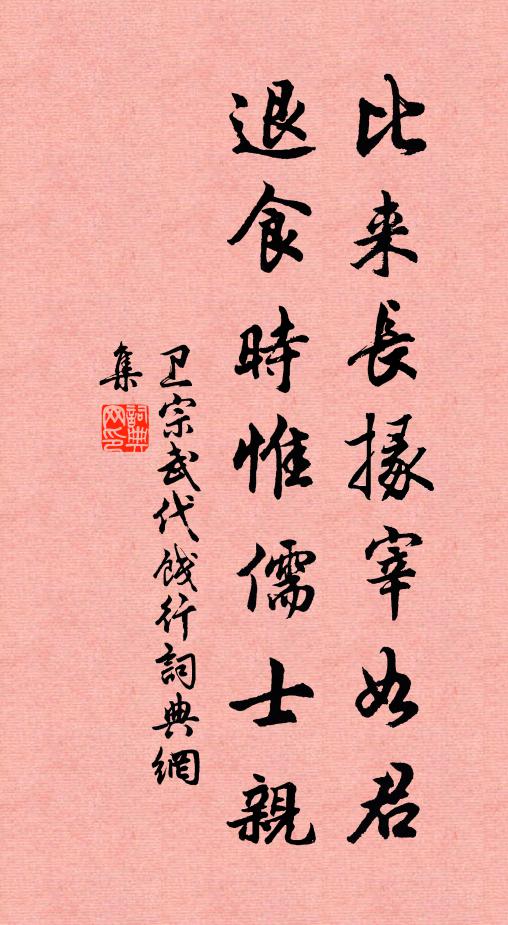 比来長掾宰如君
退食時惟儒士親
卫宗武代餞行詞典網
集
詞典網印